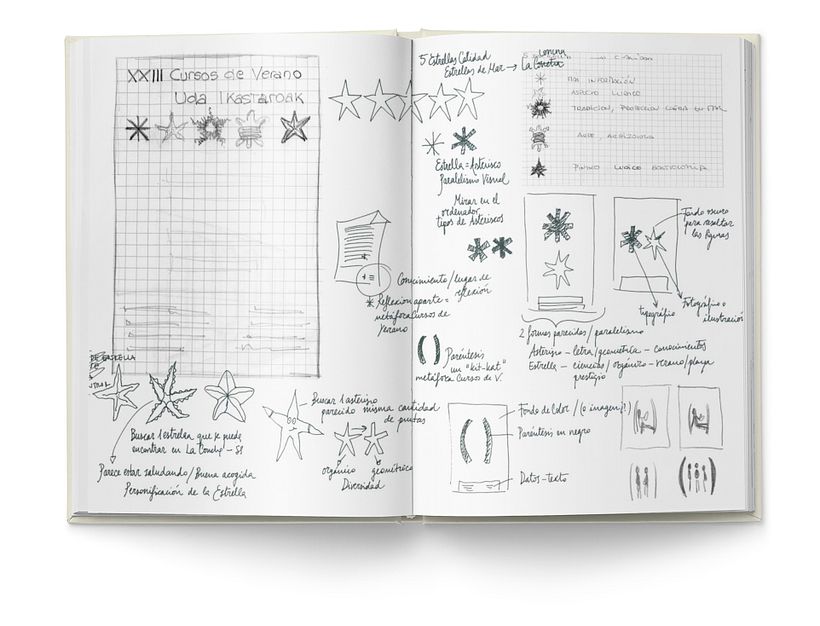 XXIII Cursos de Verano
Uda Ikastaroak
ESTRELLA
Buscar 1 estrella que se pueda
encontrar en La Concha - SI
Parece estar saludando/Buena acogida
Personificación de la Estrella
Conocimiento/lugar de
reflexión
* Reflexión aparte =
metáfora Cursos de
Verano
Buscar 1 asterisco
parecido misma cantidad
de puntas
orgánico geométrico
Diversidad
5 Estrellas Calidad
Estrellas de Mar → La Concha
Estrella = Asterisco
Paralelismo Visual
Mirar en el
ordenador
tipos de Asteriscos
( ) Paréntesis
un "kit-kat"
metáfora Cursos de V.
INFORMACIÓN
ASPECTO LUDICO
TRADICION, PROTECCION
LUDICO
Fondo oscuro
para resaltar
las figuras
tipográfico
Fotográfico o
ilustración
2 formas parecidas / paralelismo
Asterisco - letra/geometría - conocimientos
Estrella - ciencias/orgánico - verano/playa
prestigio
Fondo de Color / (o imagen?)
Paréntesis en negro
Datos-texto